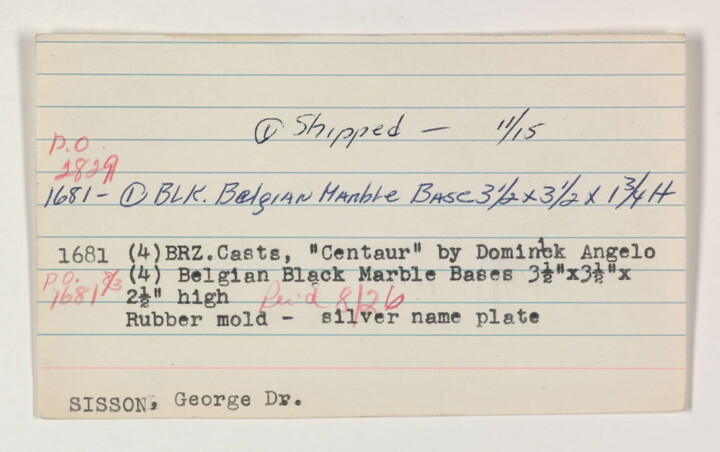 ① Shipped — 11/15
P.O.
2829
1681- ① BLK. Belgian Marble Base 3 1/2 x 3 1/2 x 1 3/4 H
1681 (4)BRZ.Casts, "Centaur" by Dominick Angelo
(4) Belgian Black Marble Bases 3½"x3½"x
P.O. 8/3
1681
2½" high Rec'd 8/26
Rubber mold - silver name plate
SISSON, George Dr.